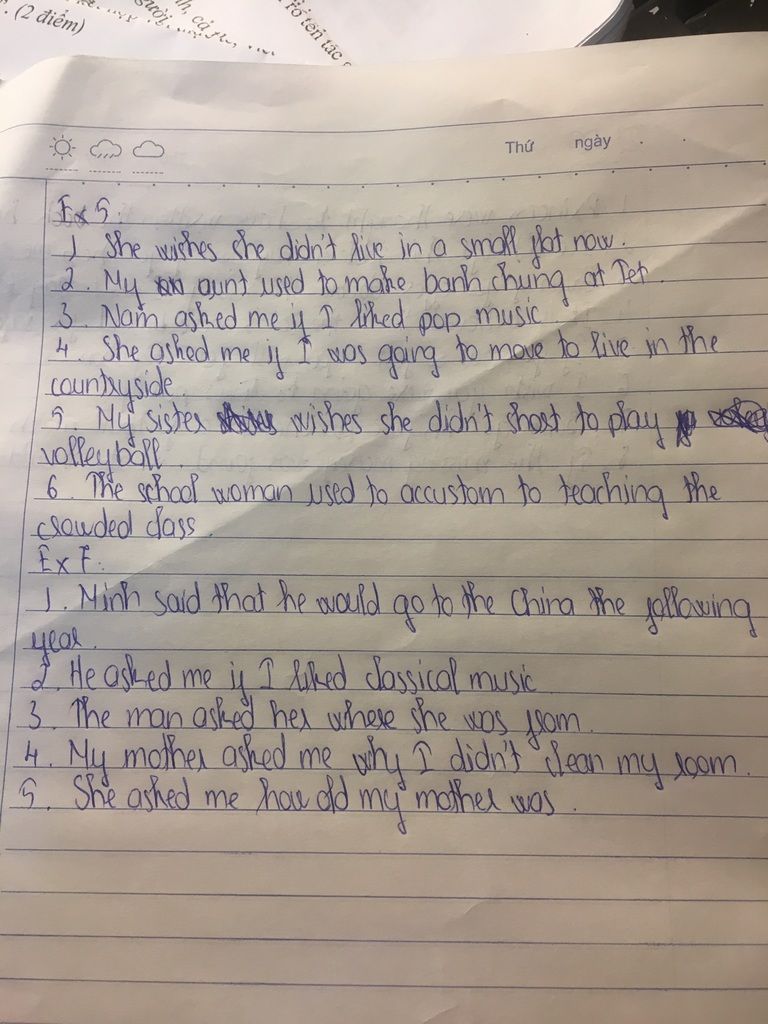 . (2 điểm)
rõ tên tác
Thứ ngày
Ex 5.
1. She wishes she didn't live in a small flat now.
2. My aunt used to make banh chung at Tet.
3. Nam asked me if I liked pop music
4. She asked me if I was going to move to live in the
countryside.
5. My sister wishes she didn't short to play
volleyball.
6. The school woman used to accustom to teaching the
crowded class.
Ex F.
1. Minh said that he would go to the China the following
year.
2. He asked me if I liked classical music
3. The man asked her where she was from.
4. My mother asked me why I didn't clean my room.
5. She asked me how old my mother was.